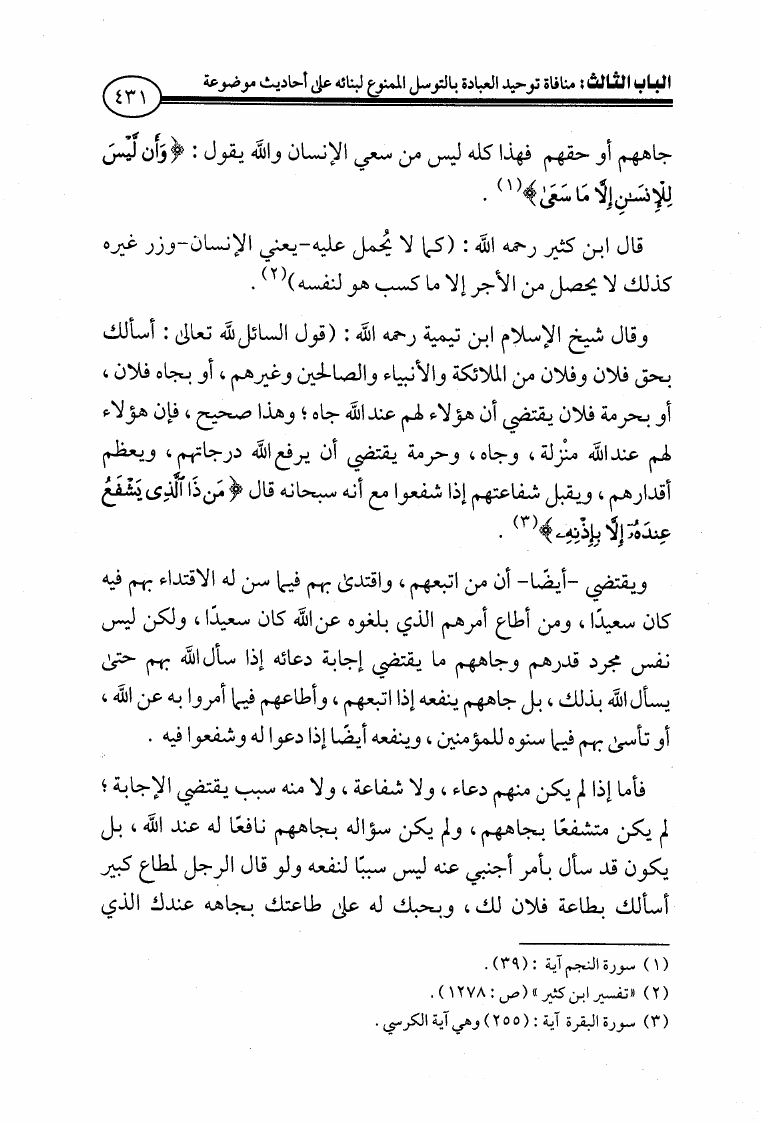 الباب الثالث: منافاة توحيد العبادة بالتوسل الممنوع لبنائه على أحاديث موضوعة
٤٣١
جاههم أو حقهم فهذا كله ليس من سعي الإنسان والله يقول : ﴿وَأَن لَّيْسَ
لِلْإِنسَٰنِ إِلَّا مَا سَعَىٰ﴾(١) .
قال ابن كثير رحمه الله : (كما لا يُحمل عليه-يعني الإنسان-وزر غيره
كذلك لا يحصل من الأجر إلا ما كسب هو لنفسه)(٢) .
وقال شيخ الإسلام ابن تيمية رحمه الله : (قول السائل لله تعالى : أسألك
بحق فلان وفلان من الملائكة والأنبياء والصالحين وغيرهم ، أو بجاه فلان ،
أو بحرمة فلان يقتضي أن هؤلاء لهم عند الله جاه ؛ وهذا صحيح ، فإن هؤلاء
لهم عند الله منْزلة ، وجاه ، وحرمة يقتضي أن يرفع الله درجاتهم ، ويعظم
أقدارهم ، ويقبل شفاعتهم إذا شفعوا مع أنه سبحانه قال ﴿مَن ذَا ٱلَّذِى يَشْفَعُ
عِندَهُۥٓ إِلَّا بِإِذْنِهِۦ﴾(٣) .
ويقتضي -أيضًا- أن من اتبعهم ، واقتدى بهم فيما سن له الاقتداء بهم فيه
كان سعيدًا ، ومن أطاع أمرهم الذي بلغوه عن الله كان سعيدًا ، ولكن ليس
نفس مجرد قدرهم وجاههم ما يقتضي إجابة دعائه إذا سأل الله بهم حتى
يسأل الله بذلك ، بل جاههم ينفعه إذا اتبعهم ، وأطاعهم فيما أمروا به عن الله ،
أو تأسى بهم فيما سنوه للمؤمنين ، وينفعه أيضًا إذا دعوا له وشفعوا فيه .
فأما إذا لم يكن منهم دعاء ، ولا شفاعة ، ولا منه سبب يقتضي الإجابة ؛
لم يكن متشفعًا بجاههم ، ولم يكن سؤاله بجاههم نافعًا له عند الله ، بل
يكون قد سأل بأمر أجنبي عنه ليس سببًا لنفعه ولو قال الرجل لمطاع كبير
أسألك بطاعة فلان لك ، وبحبك له على طاعتك بجاهه عندك الذي
(١) سورة النجم آية : (٣٩) .
(٢) «تفسير ابن كثير» (ص : ١٢٧٨) .
(٣) سورة البقرة آية : (٢٥٥) وهي آية الكرسي .